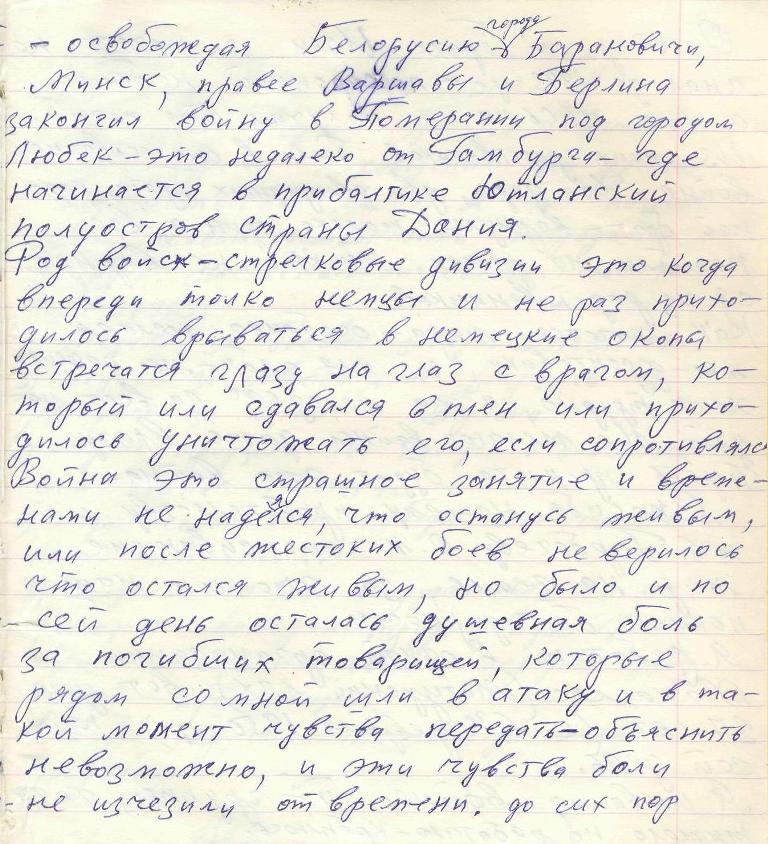 города
- освобождая Белорусию Барановичи,
Минск, правее Варшавы и Берлина
закончил войну в Померании под городом
Любек - это недалеко от Гамбурга - где
начинается в прибалтике Ютланский
полуостров страны Дания.
Род войск - стрелковые дивизии это когда
впереди толко немцы и не раз прихо-
дилось врываться в немецкие окопы
встречатся глазу на глаз с врагом, ко-
торый или сдавался в плен или прихо-
дилось уничтожать его, если сопротивлялс
Война это страшное занятие и време-
нами не надеялся, что останусь живым,
или после жестоких боев не верилось
что остался живым, но было и по
сей день осталась душевная боль
за погибших товарищей, которые
рядом со мной шли в атаку и в та-
кой момент чувства передать-объяснить
невозможно, и эти чувства боли
не изчезили от времени. до сих пор